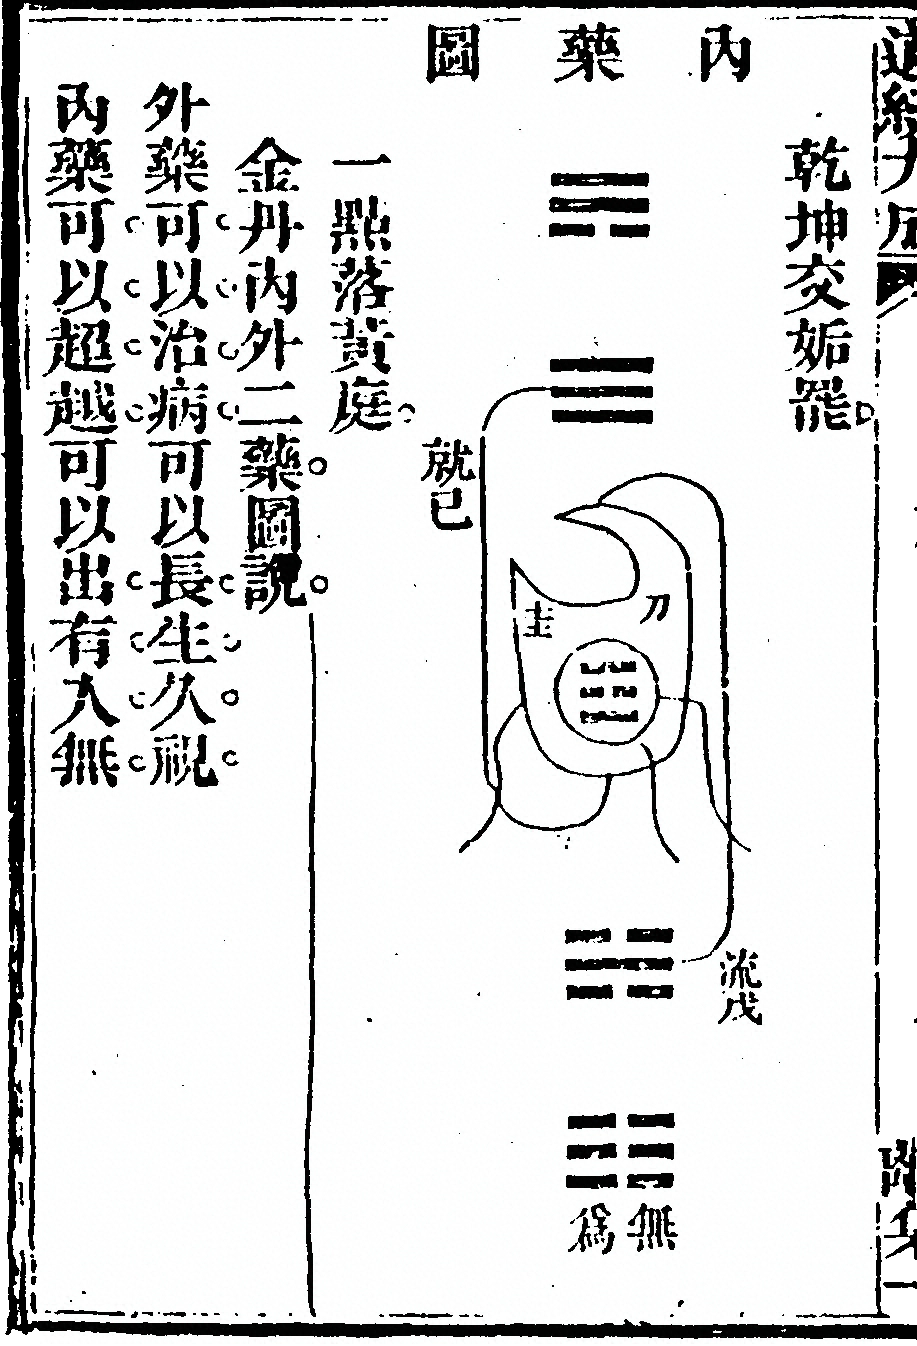 內藥圖
乾坤交姤罷。
就已
圭
刀
流戊
無為
一點落黃庭。
金丹內外二藥圖說
外藥可以治病可以長生久視
內藥可以超越可以出有入無